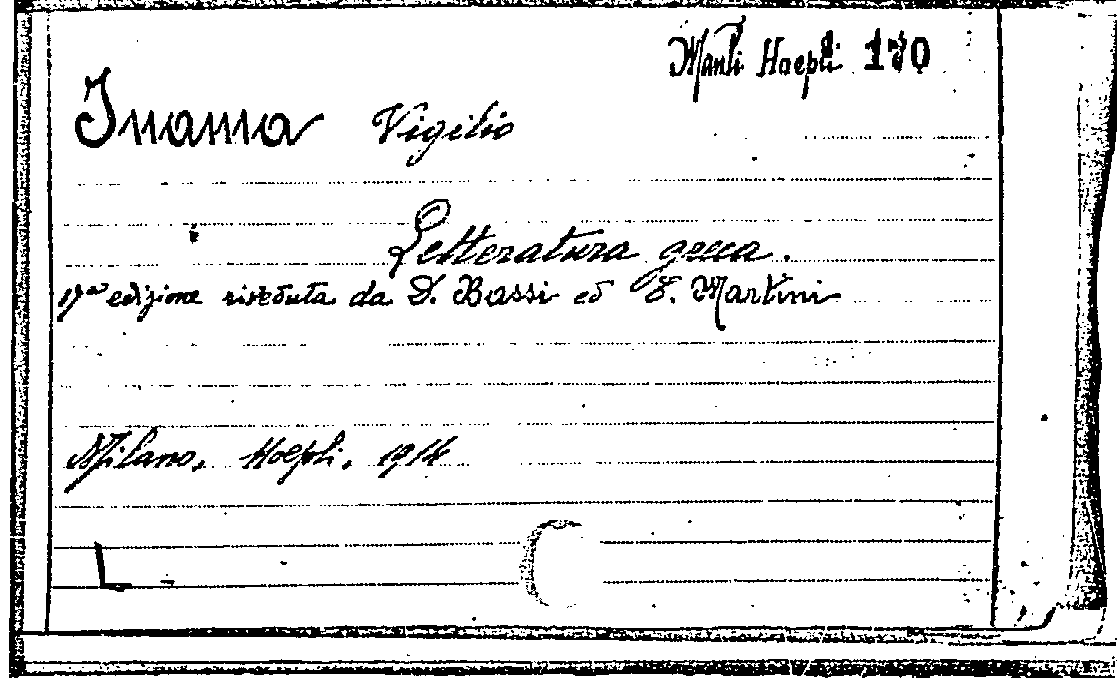 Man.li Hoepli 170
Inama Vigilio
Letteratura greca.
17ª edizione riveduta da D. Bassi ed E. Martini
Milano, Hoepli, 1914
L